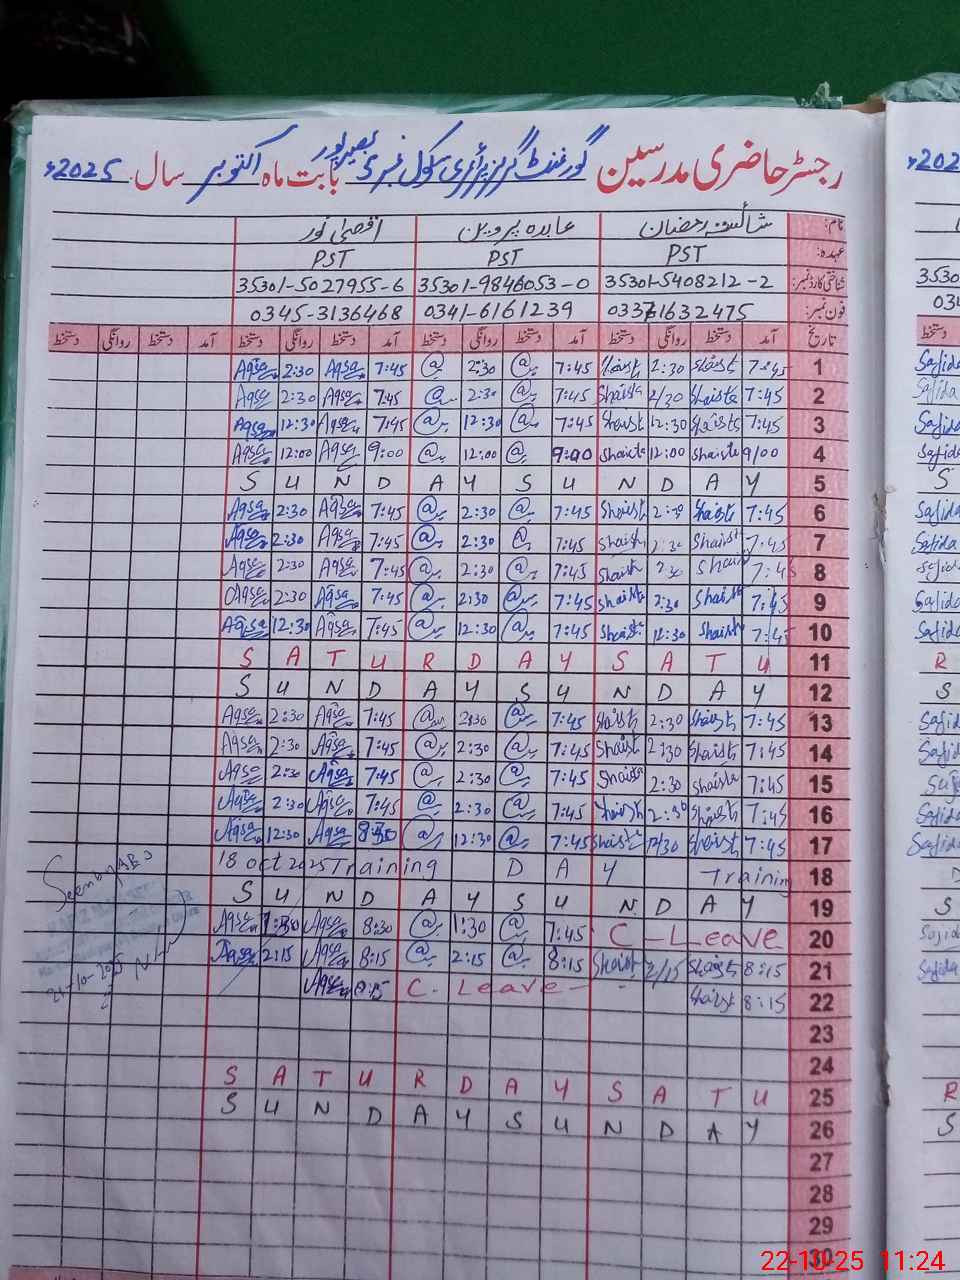 رجسٹر حاضری مدرسین گورنمنٹ گرلز پرائمری سکول نمبر 5 بصیرپور بابت ماہ اکتوبر سال 2025ء
نام: شائستہ رمضان عابدہ پروین اقصیٰ نور
عہدہ: PST PST PST
شناختی کارڈ نمبر: 35301-5408212-2 35301-9846053-0 35301-5027955-6
فون نمبر: 03371632475 0341-6161239 0345-3136468
تاریخ آمد دستخط روانگی دستخط آمد دستخط روانگی دستخط آمد دستخط روانگی دستخط آمد دستخط روانگی دستخط
Aqsa 2:30 Aqsa 7:45 @ 2:30 @ 7:45 Shaista 2:30 Shaista 7:45 1 Sajida
Aqsa 2:30 Aqsa 7:45 @ 2:30 @ 7:45 Shaista 2/30 Shaista 7:45 2 Sajida
Aqsa 12:30 Aqsa 7:45 @ 12:30 @ 7:45 Shaista 12:30 Shaista 7:45 3 Sajida
Aqsa 12:00 Aqsa 9:00 @ 12:00 @ 9:00 Shaista 12:00 Shaista 9/00 4 Sajida
S U N D A Y S U N D A Y 5 S
Aqsa 2:30 Aqsa 7:45 @ 2:30 @ 7:45 Shaist 2:30 Shaist 7:45 6 Sajida
Aqsa 2:30 Aqsa 7:45 @ 2:30 @ 7:45 Shaist 2:30 Shaist 7:45 7 Sajida
Aqsa 2:30 Aqsa 7:45 @ 2:30 @ 7:45 Shaist 2:30 Shaist 7:45 8 Sajida
Aqsa 2:30 Aqsa 7:45 @ 2:30 @ 7:45 Shaista 2:30 Shaist 7:45 9 Sajida
Aqsa 12:30 Aqsa 7:45 @ 12:30 @ 7:45 Shaist 12:30 Shaist 7:45 10 Sajida
S A T U R D A Y S A T U 11 R
S U N D A Y S U N D A Y 12 S
Aqsa 2:30 Aqsa 7:45 @ 2:30 @ 7:45 Shaist 2:30 Shaist 7:45 13 Sajida
Aqsa 2:30 Aqsa 7:45 @ 2:30 @ 7:45 Shaist 2:30 Shaist 7:45 14 Sajida
Aqsa 2:30 Aqsa 7:45 @ 2:30 @ 7:45 Shaista 2:30 Shaista 7:45 15
Aqsa 2:30 Aqsa 7:45 @ 2:30 @ 7:45 Shaist 2:30 Shaist 7:45 16 Sajida
Aqsa 12:30 Aqsa 8:30 @ 12:30 @ 7:45 Shaist 12/30 Shaist 7:45 17 Sajida
18 Oct 2025 Training D A Y Training 18 D
S U N D A Y S U N D A Y 19 S
Aqsa 1:30 Aqsa 8:30 @ 1:30 @ 7:45 C-Leave 20 Sajida
Aqsa 2:15 Aqsa 8:15 @ 2:15 @ 8:15 Shaist 2/15 Shaist 8:15 21 Sajida
Aqsa 8:15 C. Leave Shaist 8:15 22
23
24
S A T U R D A Y S A T U 25 R
S U N D A Y S U N D A Y 26 S
27
28
29
30
22-10-25 11:24